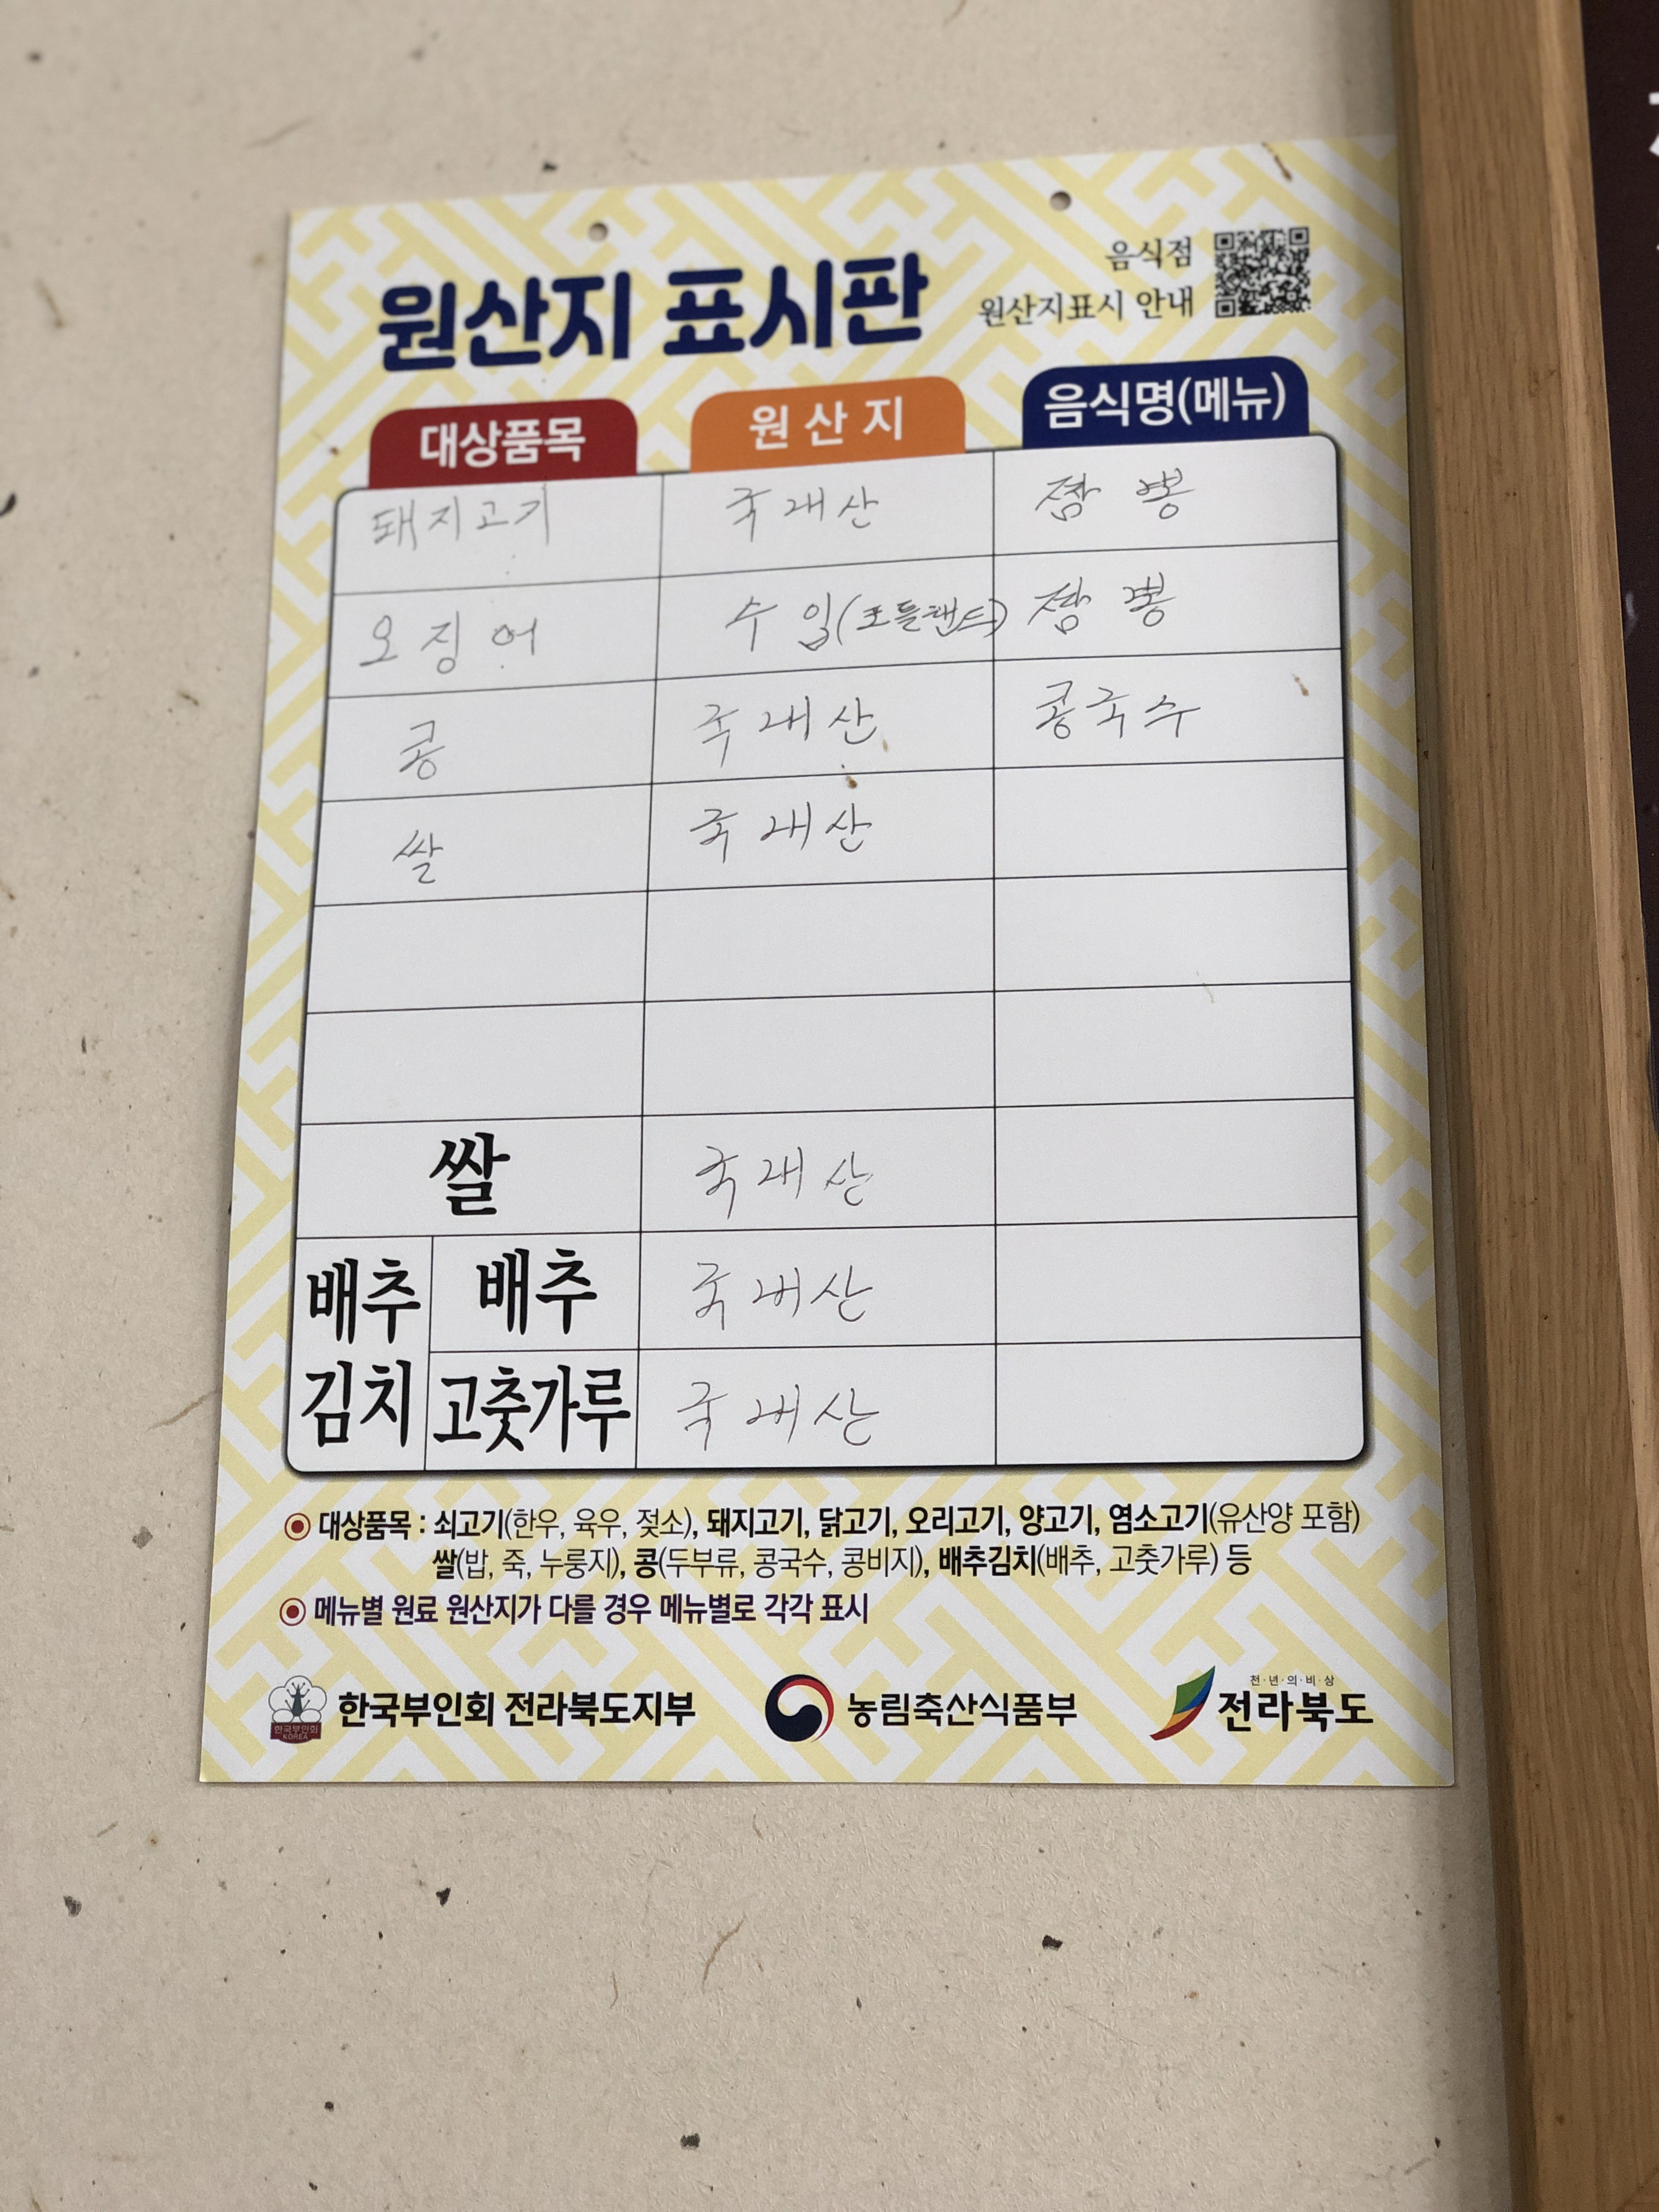 원산지 표시판
음식점
원산지표시 안내
대상품목 원산지 음식명(메뉴)
돼지고기 국내산 짬뽕
오징어 수입(포틀랜드) 짬뽕
콩 국내산 콩국수
쌀 국내산
쌀 국내산
배추김치 배추 국내산
고춧가루 국내산
대상품목 : 쇠고기(한우, 육우, 젖소), 돼지고기, 닭고기, 오리고기, 양고기, 염소고기(유산양 포함)
쌀(밥, 죽, 누룽지), 콩(두부류, 콩국수, 콩비지), 배추김치(배추, 고춧가루) 등
메뉴별 원료 원산지가 다를 경우 메뉴별로 각각 표시
한국부인회 KOREA 한국부인회 전라북도지부 농림축산식품부 천·년·의·비·상 전라북도